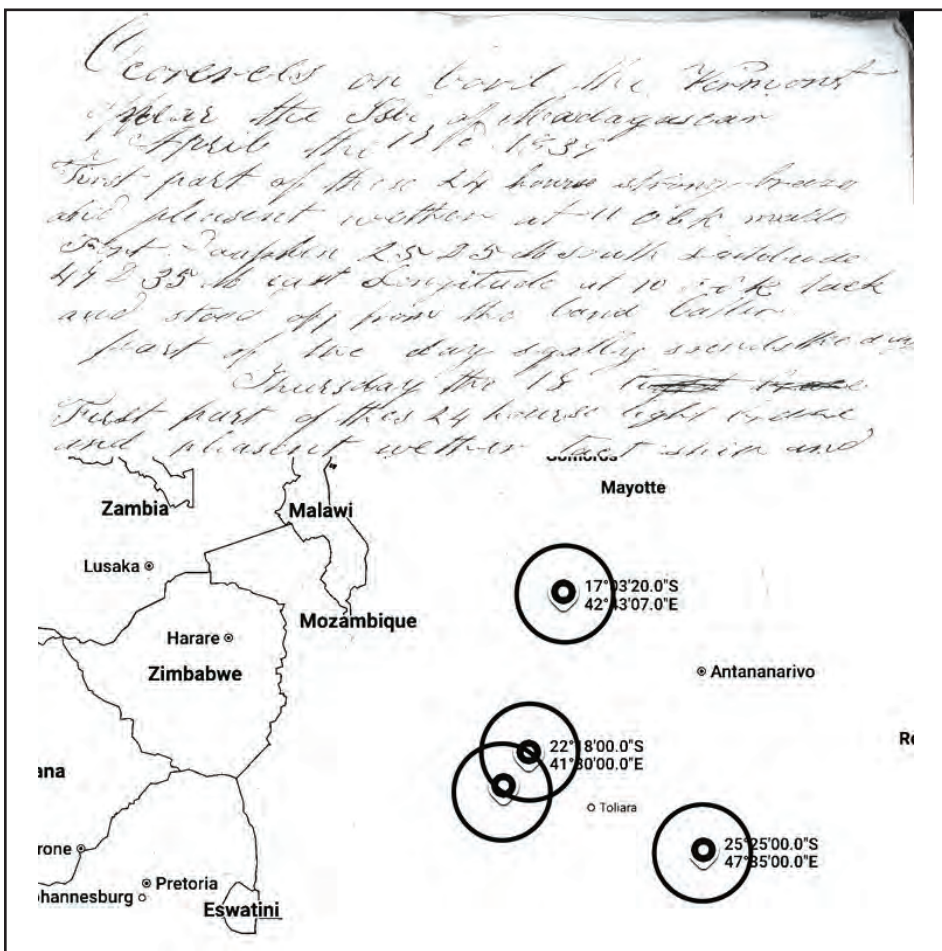 on bord the Vermont
the Isle of Madagascar
April the
First part of these 24 hourse strong breeze
and pleasent wether at 11
Dauphin 25 25 M south Latitude
35 M east Longitude at 10 tack
and stood off from the land latter
part of the day sqally so ends the day
Thursday the 18
First part of thes 24 hourse light
and pleasent wether tact ship and
Comoros
Mayotte
Zambia
Malawi
Lusaka
17°03'20.0"S
42°43'07.0"E
Mozambique
Harare
Zimbabwe
Antananarivo
22°18'00.0"S
41°30'00.0"E
Re
ana
Toliara
25°25'00.0"S
47°35'00.0"E
rone
Pretoria
ohannesburg
Eswatini